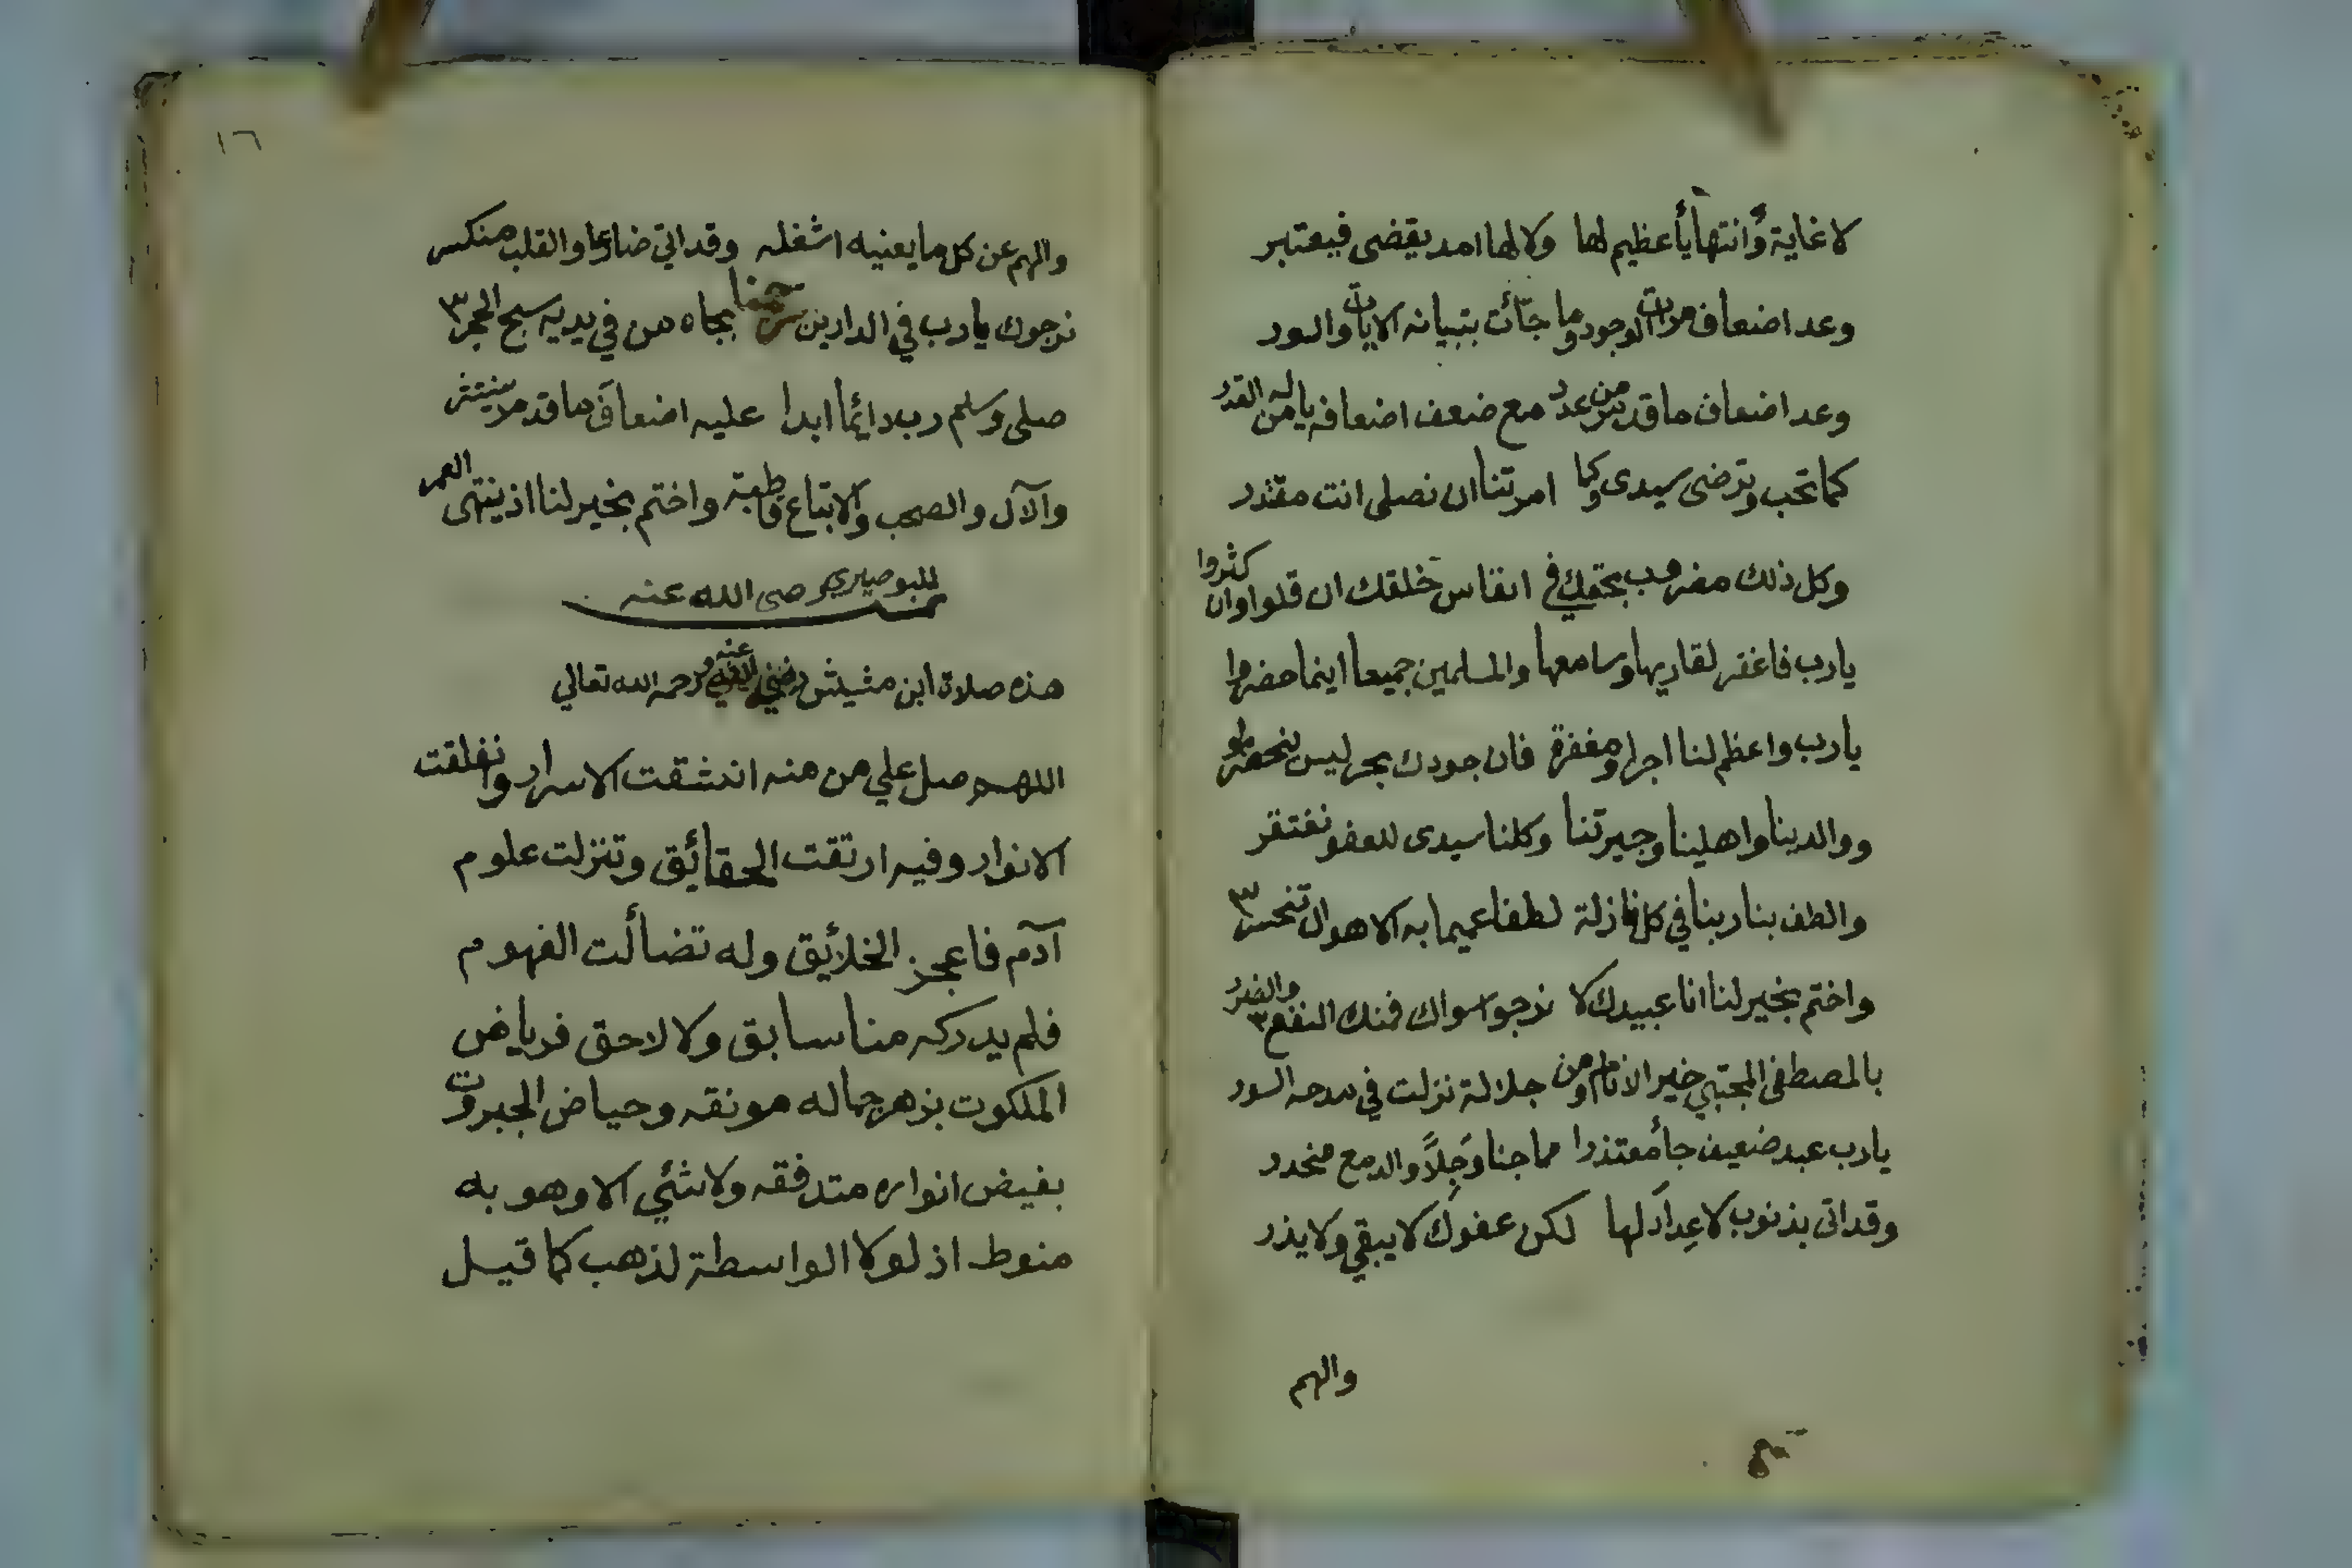 لا غاية وانتهاء يا عظيم لها ولا لها امد يقضى فيعتبر
وعد اضعاف ما مر من الوجود وما جاءت بتبيانه الايات والسور
وعد اضعاف ما قد مر من عدد مع ضعف اضعافه يا من له القدر
كما تحب وترضى سيدى وكما امرتنا ان نصلى انت مقتدر
وكل ذلك مضروب بحقك في انفاس خلقك ان قلوا وان كثروا
يارب فاغفر لقاريها وسامعها والمسلمين جميعا اينما حضروا
يارب واعظم لنا اجرا ومغفرة فان جودك بحر ليس ينحصر
ووالدينا واهلينا وجيرتنا وكلنا سيدى للعفو نفتقر
والطف بنا ربنا في كل نازلة لطفا عميما به الاهوال تنحسر ٣
واختم بخير لنا انا عبيدك لا نرجوا سواك فمنك النفع والضرر ٣
بالمصطفى المجتبى خير الانام ومن جلالة نزلت في مدحه السور
يارب عبد ضعيف جأ معتذرا مما جنا وجلاً والدمع منحدر
وقد اتى بذنوب لا عداد لها لكن عفوك لا يبقي ولا يذر
والهم
١٦
والهم عن كل ما يعنيه اشغله وقد اتى ضارعا والقلب منكسر
نرجوك يارب في الدارين ترحمنا بجاه من في يديه سبح الحجر ٣
صلى وسلم رب دائما ابدا عليه اضعاف ما قد مر منتثر
والآل والصحب والاتباع قاطبة واختم بخير لنا اذ ينتهى العمر
للبوصيرى رضى الله عنه
هذه صلاة ابن مشيش رضي الله عنه ورحمه الله تعالي
اللهم صل علي من منه انشقت الاسرار وانفلقت
الانوار وفيه ارتقت الحقائق وتنزلت علوم
آدم فاعجز الخلائق وله تضائلت الفهوم
فلم يدركه منا سابق ولا لاحق فرياض
الملكوت بزهر جماله مونقه وحياض الجبروت
بفيض انواره متدفقه ولا شئي الا وهو به
منوط اذ لولا الواسطة لذهب كما قيل